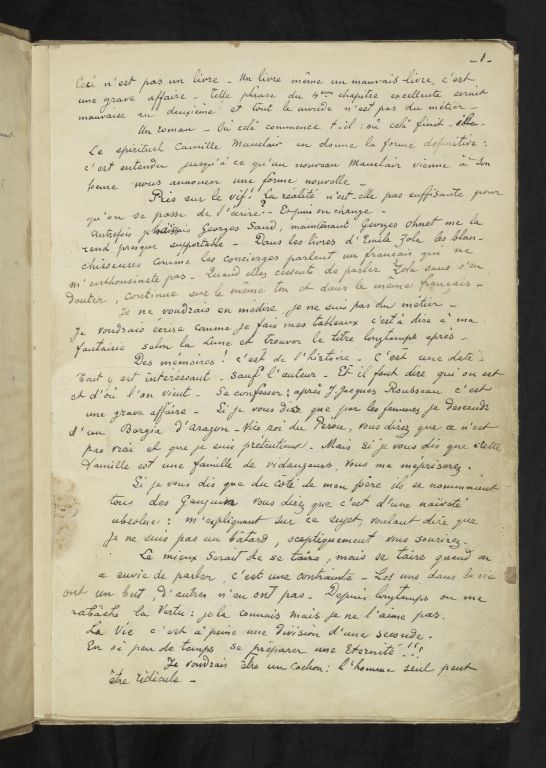 -1-
Ceci n'est pas un livre - Un livre même un mauvais livre, c'est
une grave affaire - Telle phrase du 4ème chapitre excellente serait
mauvaise au deuxième et tout le monde n'est pas du métier -
Un roman - Où celà commence t-il : où celà finit-il -
Le spirituel Camille Mauclair en donne la forme définitive :
c'est entendu jusqu'à ce qu'un nouveau Mauclair vienne à son
heure nous annoncer une forme nouvelle -
Pris sur le vif ! La réalité n'est-elle pas suffisante pour
qu'on se passe de l'écrire ? - Et puis on change -
Autrefois je haïssais Georges Sand, maintenant Georges Ohnet me la
rend presque supportable - Dans les livres d'Emile Zola les blan-
chisseuses comme les concierges parlent un français qui ne
m'enthousiaste pas - Quand elles cessent de parler Zola sans s'en
douter, continue sur le même ton et dans le même français -
Je ne voudrais en médire je ne suis pas du métier -
Je voudrais écrire comme je fais mes tableaux c'est à dire à ma
fantaisie selon la lune et trouver le titre longtemps après -
Des mémoires ! c'est de l'histoire - C'est une date :
Tout y est intéressant - sauf l'auteur - Et il faut dire qui on est
et d'où l'on vient - Se confesser : après J. Jacques Rousseau c'est
une grave affaire - Si je vous dis que par les femmes je descends
d'un Borgia d'Aragon - Vice roi du Pérou, vous direz que ce n'est
pas vrai et que je suis prétentieux - Mais si je vous dis que cette
famille est une famille de vidangeurs, vous me mépriserez.
Si je vous dis que du côté de mon père ils se nommaient
tous des Gauguin vous direz que c'est d'une naïveté
absolue : m'expliquant sur ce sujet, voulant dire que
je ne suis pas un bâtard, sceptiquement vous sourirez -
Le mieux serait de se taire, mais se taire quand on
a envie de parler, c'est une contrainte - Les uns dans la vie
ont un but, d'autres n'en ont pas - Depuis longtemps on me
rabâche la Vertu : je la connais mais je ne l'aime pas.
La Vie c'est à peine une division d'une seconde.
En si peu de temps se préparer une Eternité !!!
Je voudrais être un cochon : l'homme seul peut
être ridicule -